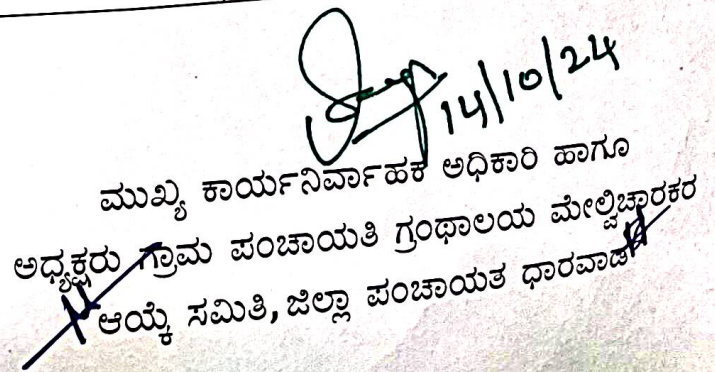 14/10/24
ಮುಖ್ಯ ಕಾರ್ಯನಿರ್ವಾಹಕ ಅಧಿಕಾರಿ ಹಾಗೂ
ಅಧ್ಯಕ್ಷರು ಗ್ರಾಮ ಪಂಚಾಯತಿ ಗ್ರಂಥಾಲಯ ಮೇಲ್ವಿಚಾರಕರ
ಆಯ್ಕೆ ಸಮಿತಿ, ಜಿಲ್ಲಾ ಪಂಚಾಯತ ಧಾರವಾಡ